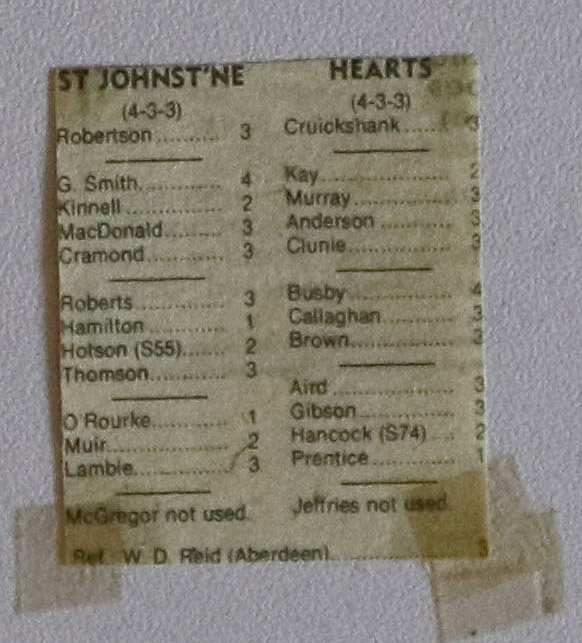 ST JOHNST'NE
(4-3-3)
Robertson.......... 3
G. Smith............ 4
Kinnell................ 2
MacDonald......... 3
Cramond............ 3
Roberts............... 3
Hamilton............. 1
Hotson (S55)....... 2
Thomson............ 3
O'Rourke............ 1
Muir.................... 2
Lambie............... 3
McGregor not used.
HEARTS
(4-3-3)
Cruickshank....... 3
Kay...................... 2
Murray................. 3
Anderson ............ 3
Clunie.................. 3
Busby.................. 4
Callaghan............ 3
Brown.................. 3
Aird ..................... 3
Gibson................. 3
Hancock (S74) .... 2
Prentice............... 1
Jeffries not used.
Ref. W. D. Reid (Aberdeen)........................ 3